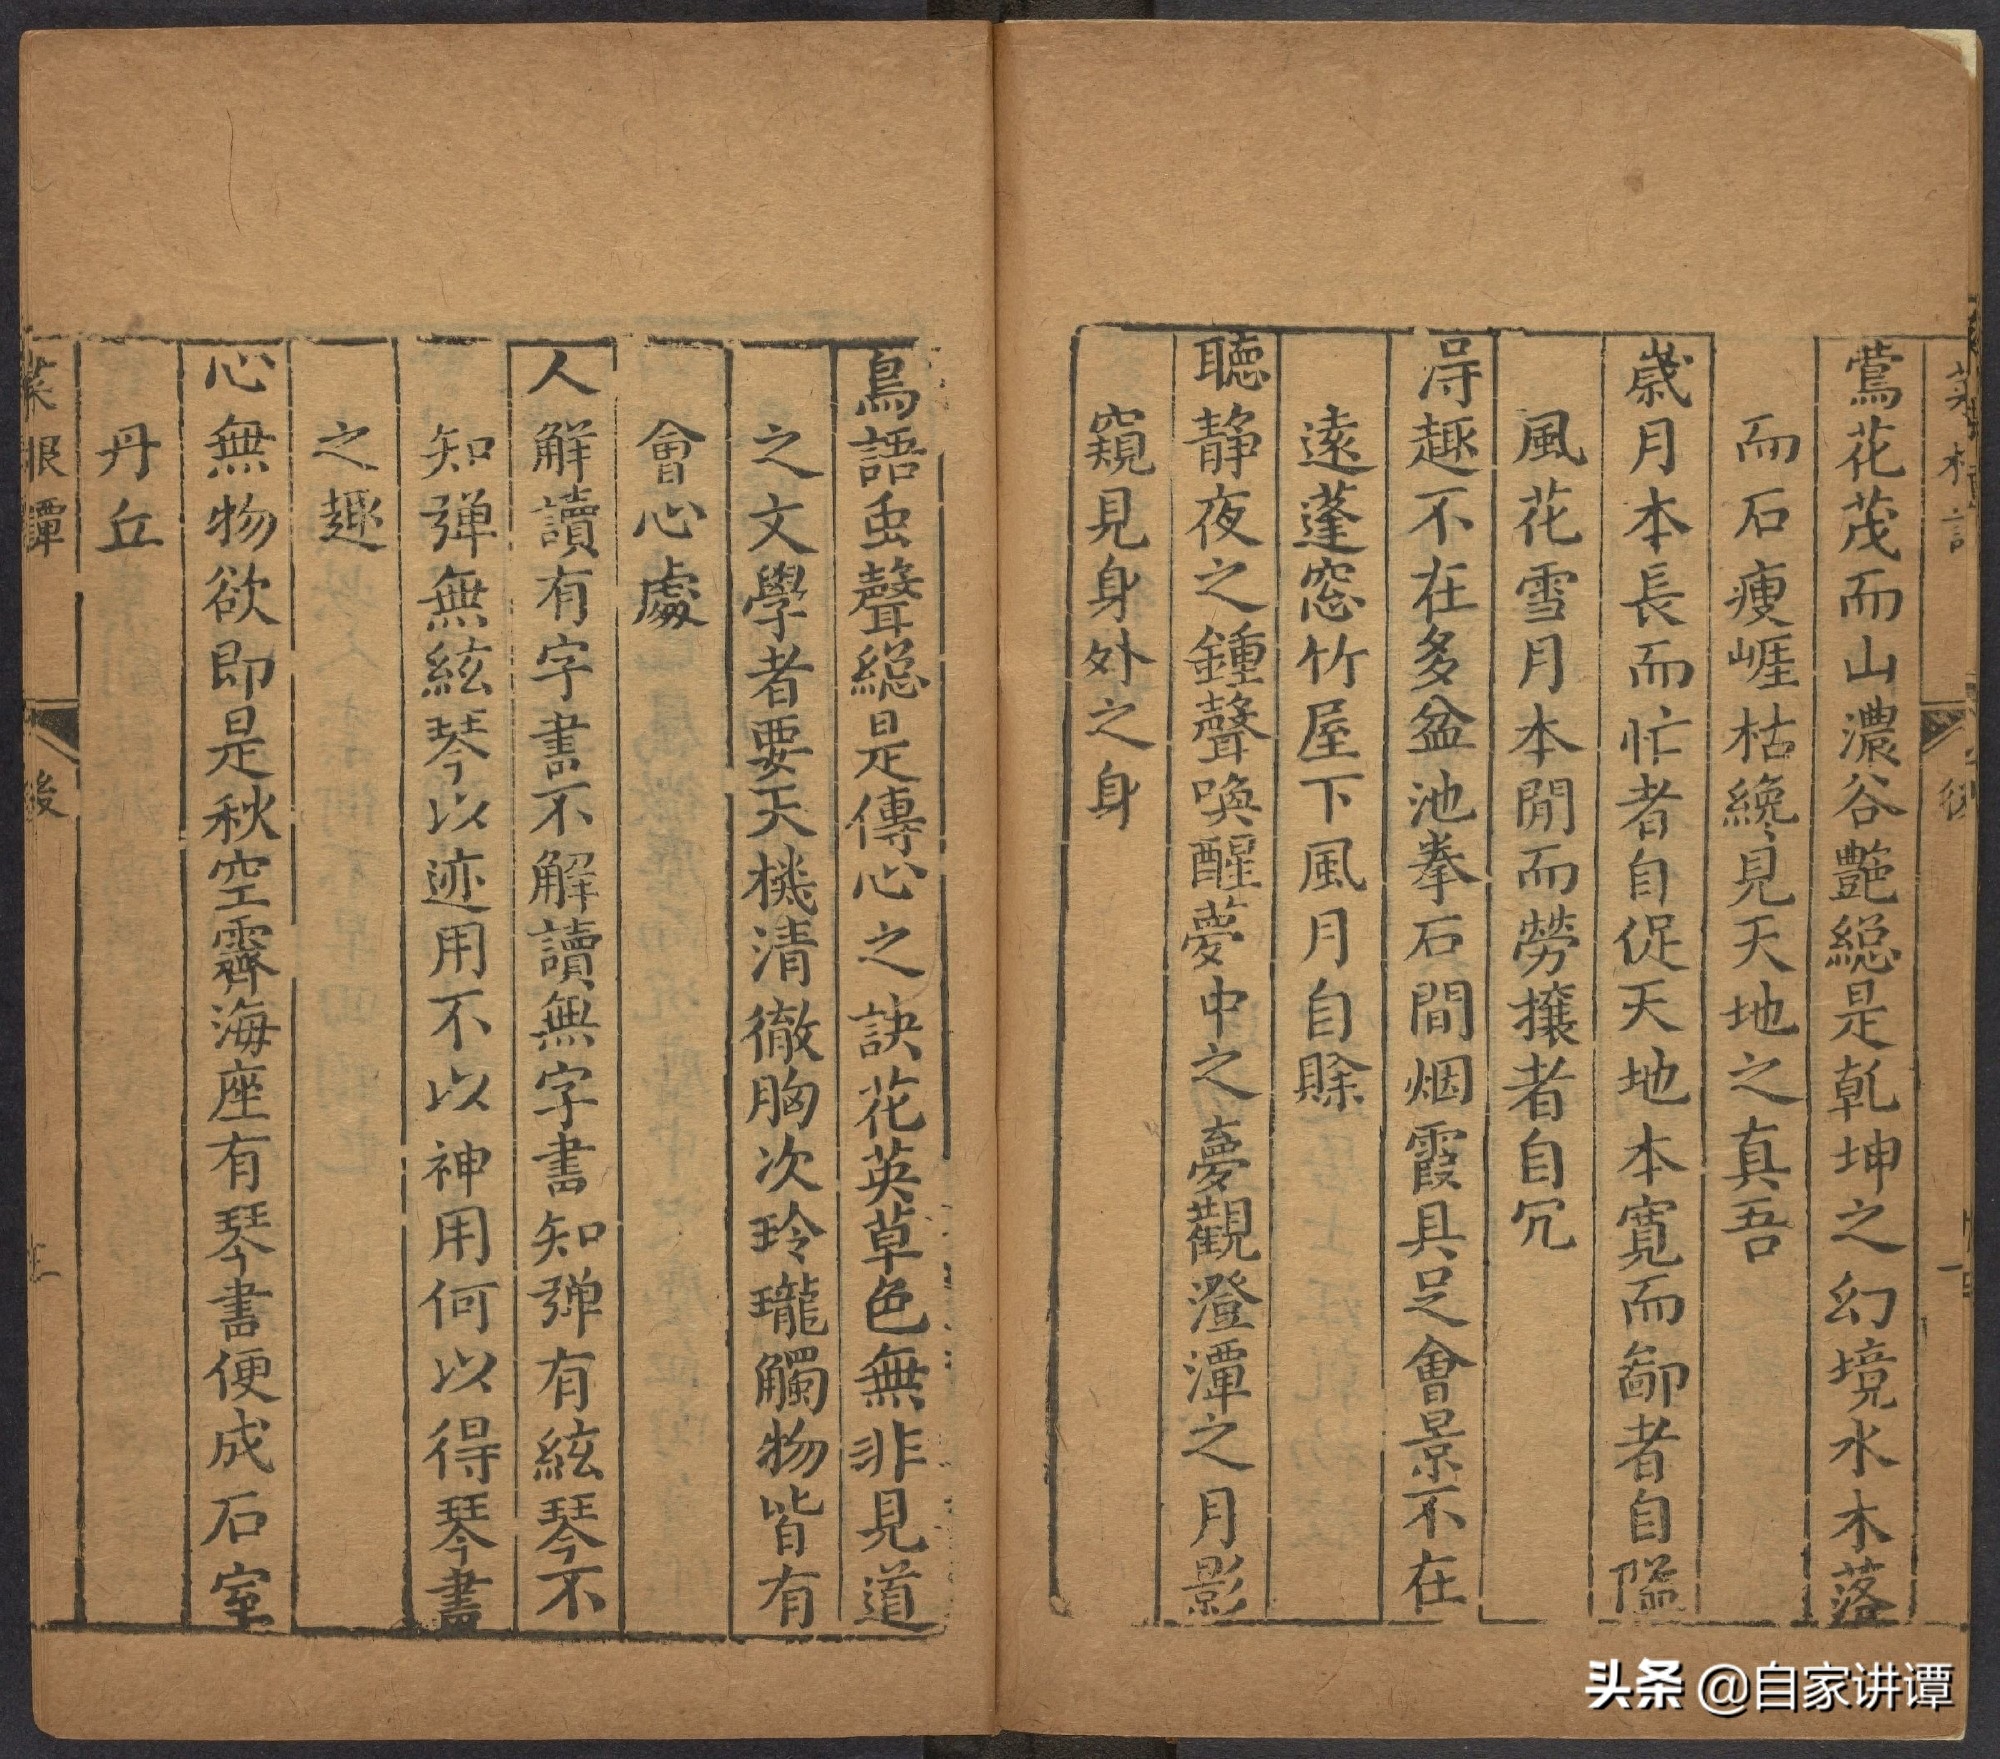 鶯花茂而山濃谷艷緫是乾坤之幻境水木落
而石瘦崕枯纔見天地之真吾
歲月本長而忙者自促天地本寬而鄙者自隘
風花雪月本閒而勞攘者自冗
淂趣不在多盆池拳石間烟霞具足會景不在
遠蓬窓竹屋下風月自賒
聽静夜之鍾聲喚醒夢中之夢觀澄潭之月影
窺見身外之身
鳥語虫聲緫是傳心之訣花英草色無非見道
之文學者要天機清徹胸次玲瓏觸物皆有
會心處
人解讀有字書不解讀無字書知弹有絃琴不
知弹無絃琴以迹用不以神用何以得琴書
之趣
心無物欲即是秋空霽海座有琴書便成石室
丹丘
菜根譚
後
头条 @自家讲谭